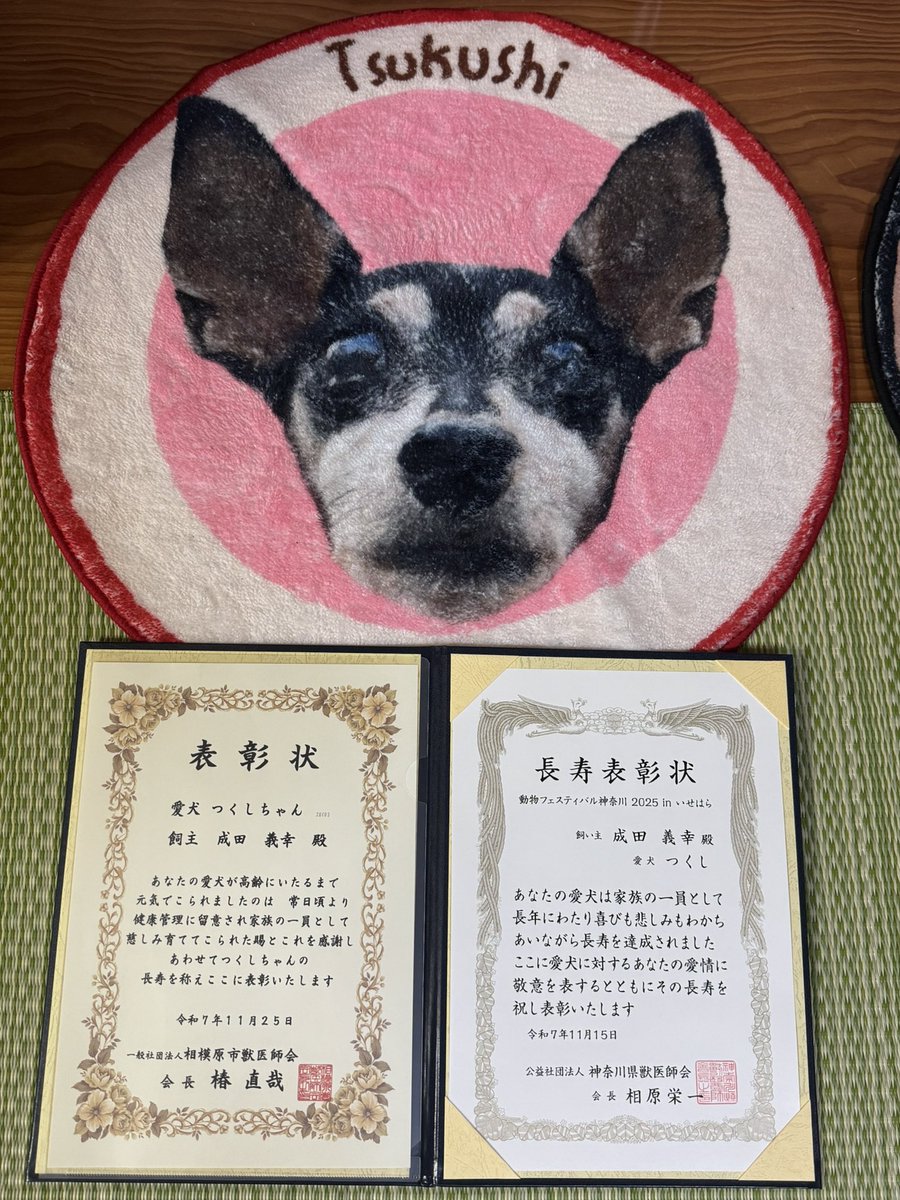 Tsukushi
表彰状
愛犬 つくしちゃん
飼主 成田 義幸 殿
あなたの愛犬が高齢にいたるまで
元気でこられましたのは 常日頃より
健康管理に留意され家族の一員として
慈しみ育ててこられた賜とこれを感謝し
あわせてつくしちゃんの
長寿を称えここに表彰いたします
令和7年11月25日
一般社団法人相模原市獣医師会
会長 椿 直哉
長寿表彰状
動物フェスティバル神奈川 2025 in いせはら
飼い主 成田 義幸 殿
愛犬 つくし
あなたの愛犬は家族の一員として
長年にわたり喜びも悲しみもわかち
あいながら長寿を達成されました
ここに愛犬に対するあなたの愛情に
敬意を表するとともにその長寿を
祝し表彰いたします
令和7年11月15日
公益社団法人 神奈川県獣医師会
会長 相原栄一